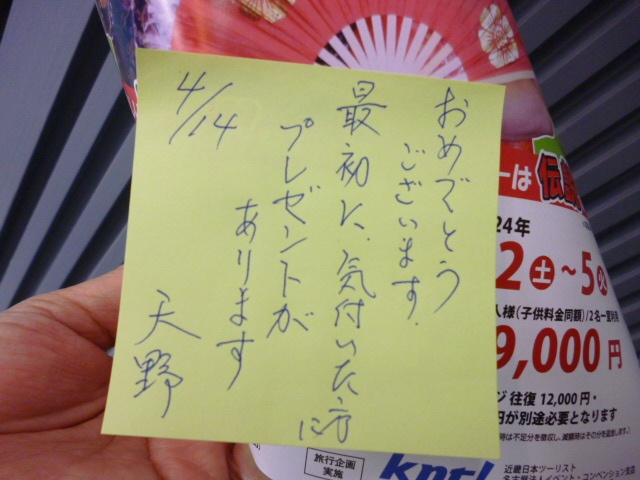 おめでとう
ございます.
最初に、気付いた方に
プレゼントが
あります
天野
4/14
ーは
24年
2土~5火
人様(子供料金同額)/2名一室利用
9,000円
往復 12,000円・
円が別途必要となります
旅行企画
実施
knt!
近畿日本ツーリスト
名古屋法人イベント・コンベンション支店